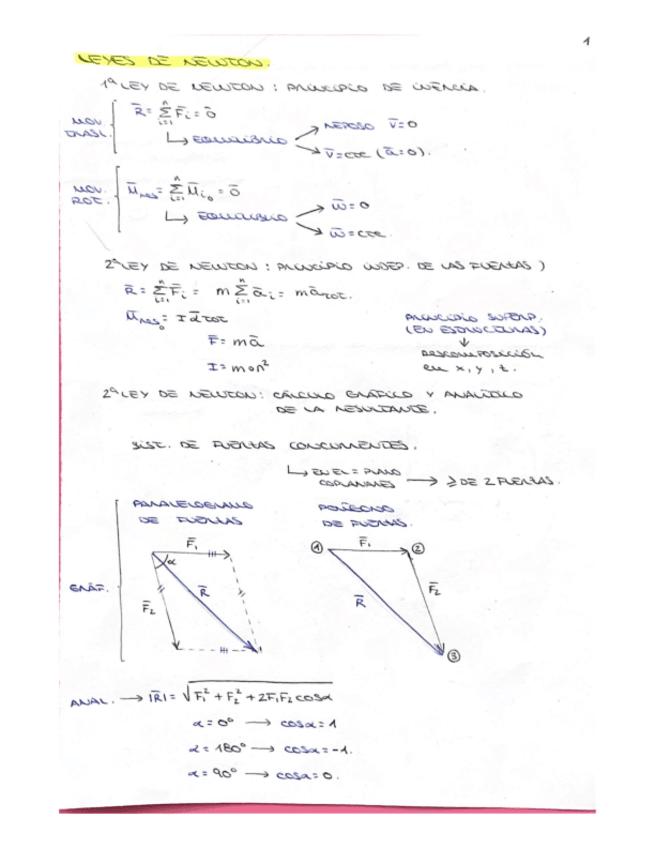 1
LEYES DE NEWTON.
1ª LEY DE NEWTON : PRINCIPIO DE INERCIA.
MOV. TRASL.
R̄ = Σ(i=1→n) F̄i = 0̄
↳ EQUILIBRIO
→ REPOSO v̄=0
→ v̄=cte (ā=0).
MOV. ROT.
M̄RES = Σ(i=1→n) M̄i₀ = 0̄
↳ EQUILIBRIO
→ ω̄=0
→ ω̄=cte.
2ª LEY DE NEWTON : PRINCIPIO INDEP. DE LAS FUERZAS )
R̄ = Σ(i=1→n) F̄i = m Σ(i=1→n) āi = māTOT.
M̄RES₀ = I ᾱ TOT
PRINCIPIO SUPERP.
(EN ESTRUCTURAS)
↓
DESCOMPOSICIÓN
en x, y, z.
F̄ = mā
I = m·r²
2ª LEY DE NEWTON: CÁLCULO GRÁFICO Y ANALÍTICO
DE LA RESULTANTE.
SIST. DE FUERZAS CONCURRENTES.
↳ EN EL = PLANO
COPLANARES → ≥ DE 2 FUERZAS.
GRÁF.
PARALELOGRAMO
DE FUERZAS
F̄₁
α
R̄
F̄₂
POLÍGONO
DE FUERZAS.
① F̄₁ ②
F̄₂
R̄
③
ANAL. → |R̄| = √(F₁² + F₂² + 2F₁F₂ cosα)
α = 0° → cosα = 1
α = 180° → cosα = -1.
α = 90° → cosα = 0.